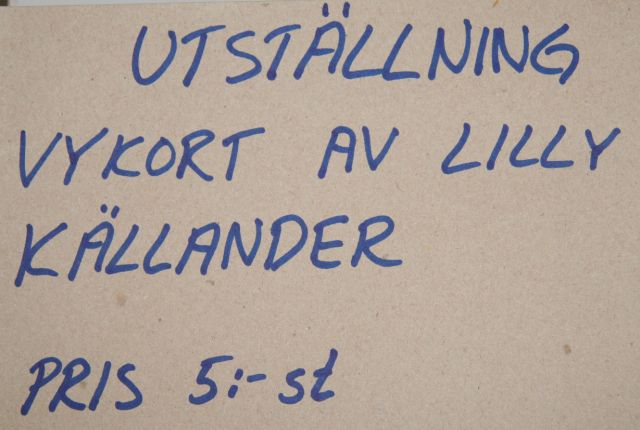 UTSTÄLLNING
VYKORT AV LILLY
KÄLLANDER
PRIS 5:- st